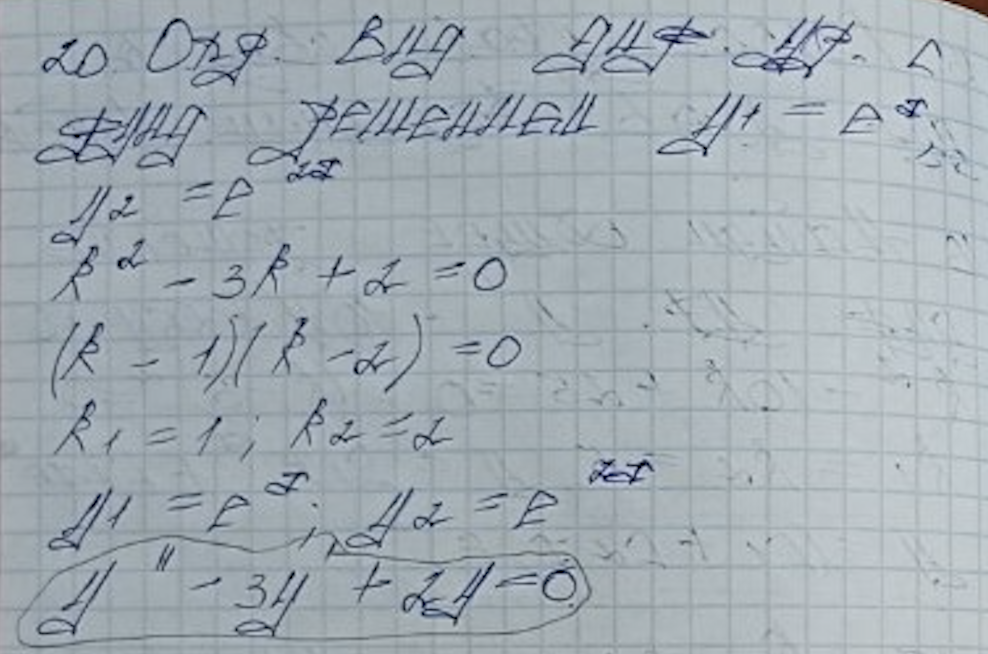 20. Опр. вид диф. ур. с
фунд решением y1 = e^x;
y2 = e^2x
k^2 - 3k + 2 = 0
(k - 1)(k - 2) = 0
k1 = 1; k2 = 2
y1 = e^x; y2 = e^2x
y'' - 3y + 2y = 0